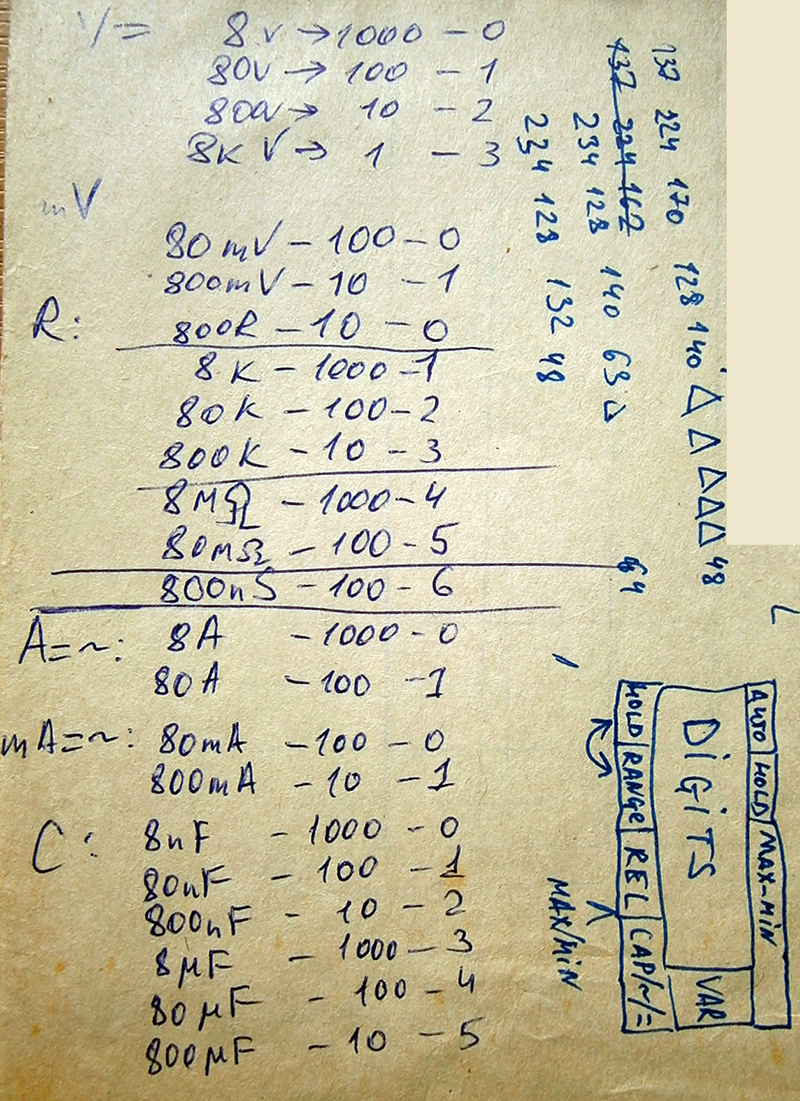 V= 8V → 1000 - 0
80V → 100 - 1
800V → 10 - 2
8kV → 1 - 3
mV
80mV - 100 - 0
800mV - 10 - 1
R: 800R - 10 - 0
8K - 1000 - 1
80K - 100 - 2
800K - 10 - 3
8MΩ - 1000 - 4
80MΩ - 100 - 5
800nS - 100 - 6
A=~: 8A - 1000 - 0
80A - 100 - 1
mA=~: 80mA - 100 - 0
800mA - 10 - 1
C: 8nF - 1000 - 0
80nF - 100 - 1
800nF - 10 - 2
8μF - 1000 - 3
80μF - 100 - 4
800μF - 10 - 5
137 224 170 128 140 Δ Δ Δ Δ Δ 48
137 224 167
234 128 140 63 Δ
234 128 132 48
64
AUTO HOLD MAX-MIN
DIGITS VAR
HOLD RANGE REL CAP/~/=
MAX/MIN